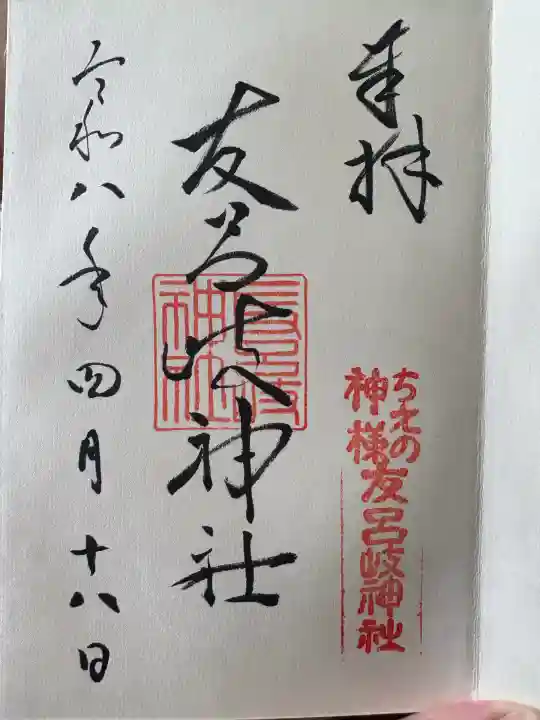 奉拝
ちえの
神様友呂岐神社
友呂岐神社
令和八年四月十八日